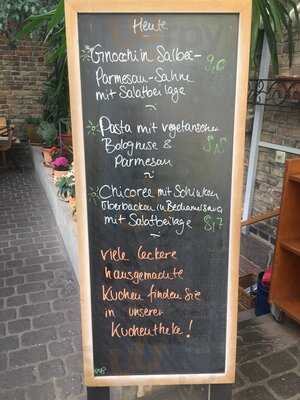 Heute
Gnocchi in Salbei-
Parmesan-Sahne
mit Salatbeilage
9,0
Pasta mit vegetarischer
Bolognese &
Parmesan
8,5
Chicorée mit Schinken
überbacken in Bechamelsauce
mit Salatbeilage
8,7
viele leckere
hausgemachte
Kuchen finden Sie
in unserer
Kuchentheke!